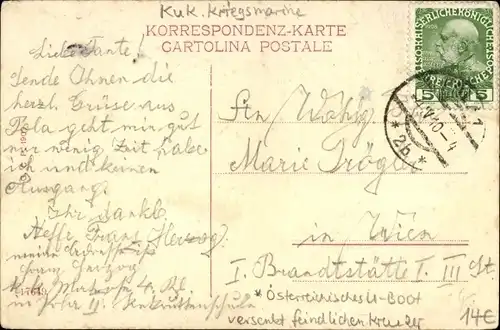 KuK. Kriegsmarine
KORRESPONDENZ-KARTE
CARTOLINA POSTALE
5 5
Liebe Tante!
Sende Ihnen die
herzl. Grüse aus
Pola geht mir gut
nur wenig Zeit habe
ich und keinen
Ausgang.
Ihr dankb.
Neffe Franz Herzog
meine Adresse ist
Franz Herzog
in Pola II.
An Wohlg
Marie Trögl
in Wien
I. Brandstätte I. III St.
*Österreichisches U-Boot
versenkt feindlichen Kreuzer
14€
* 2b *